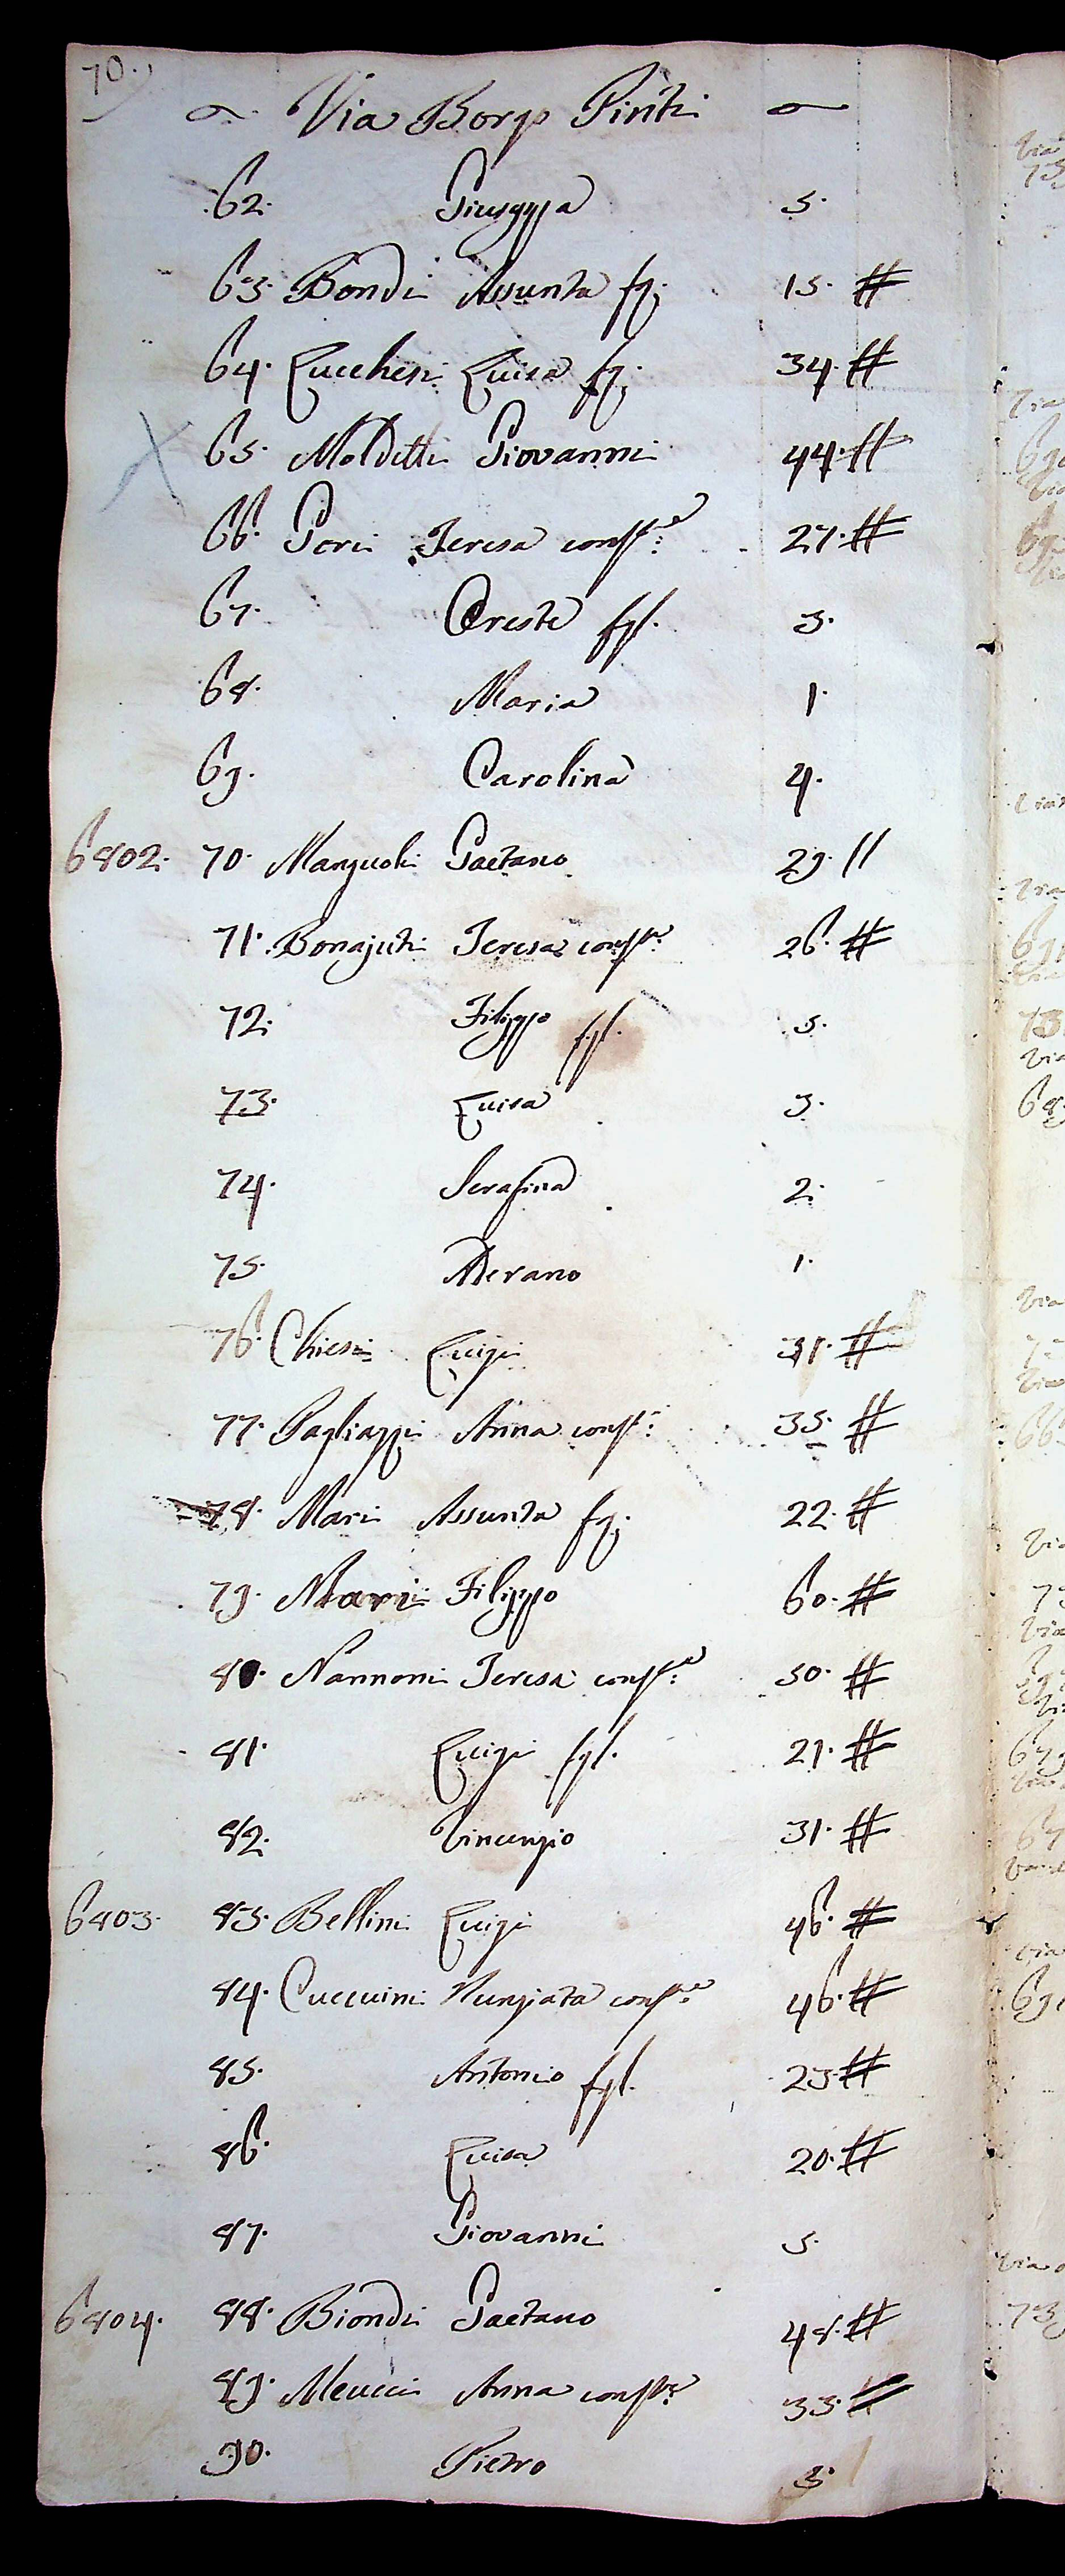 70.
Via Borgo Pinti
62. Giuseppa 5.
63. Bondi Assunta fg: 15. #
64. Lucchesi Luisa fg: 34. #
65. Molditti Giovanni 44. #
66. Gori Teresa conste: 27. #
67. Oreste fgl. 3.
68. Maria 1.
69. Carolina 4.
6802. 70. Manzuoli Gaetano 29. //
71. Bonajuti Teresa conste 26. #
72. Filippo fgl. 5.
73. Luisa 3.
74. Serafina 2.
75. Aderano 1.
76. Chiesi Luigi 31. #
77. Pagliazzi Anna conste: 35. #
78. Mari Assunta fg: 22. #
79. Mari Filippo 60. #
80. Nannoni Teresa conste: 50. #
81. Luigi fgl. 21. #
82. Vincenzio 31. #
6803. 83. Bellini Luigi 46. #
84. Cuccuini Nunziata conste: 46. #
85. Antonio fgl. 23. #
86. Luisa 20. #
87. Giovanni 5.
6804. 88. Biondi Gaetano 48. #
89. Meucci Anna conste: 33. #
90. Pietro 3.